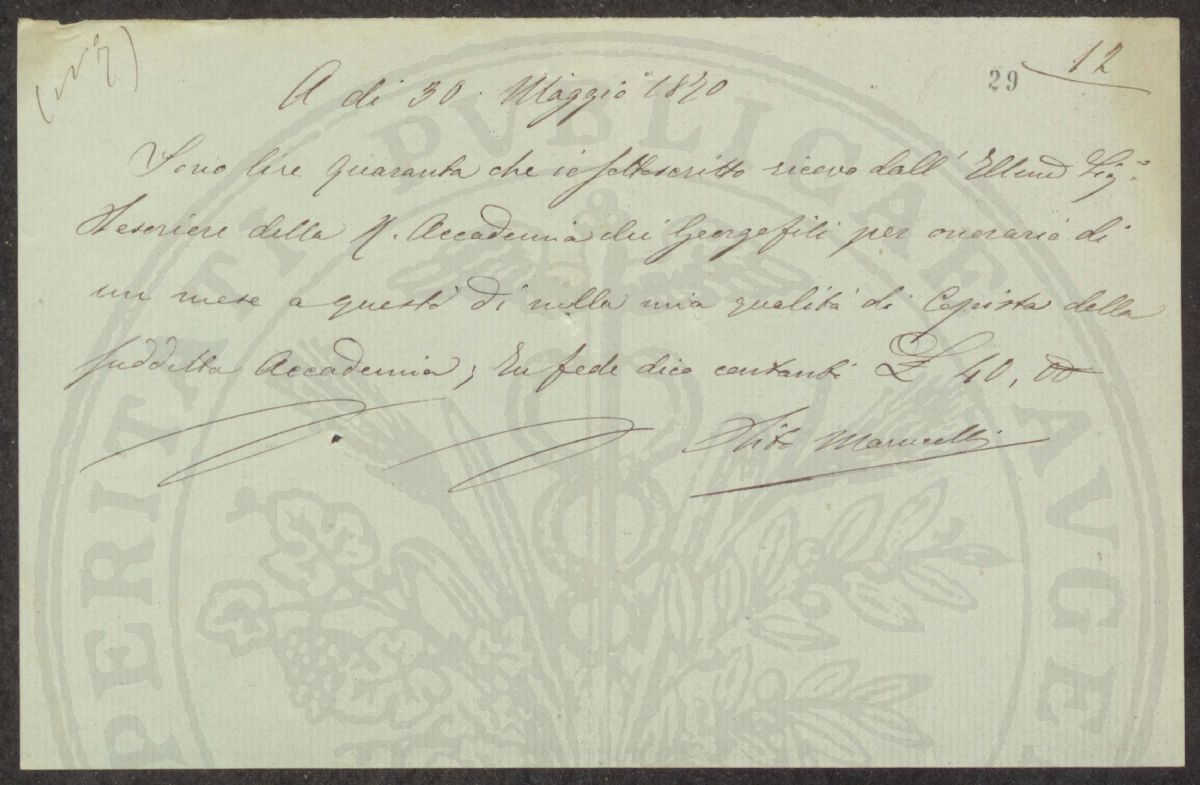 (N° 7)
29 12
A di 30. Maggio 1870
Sono lire quaranta che io sottoscritto ricevo dall'
Tesoriere della R. Accademia dei Georgofili per onorario di
un mese a questo dì nella mia qualità di Copista della
suddetta Accademia; En fede dico contanti £ 40,00
Marucelli
PROSPERITATI PVBLICAE AVGE